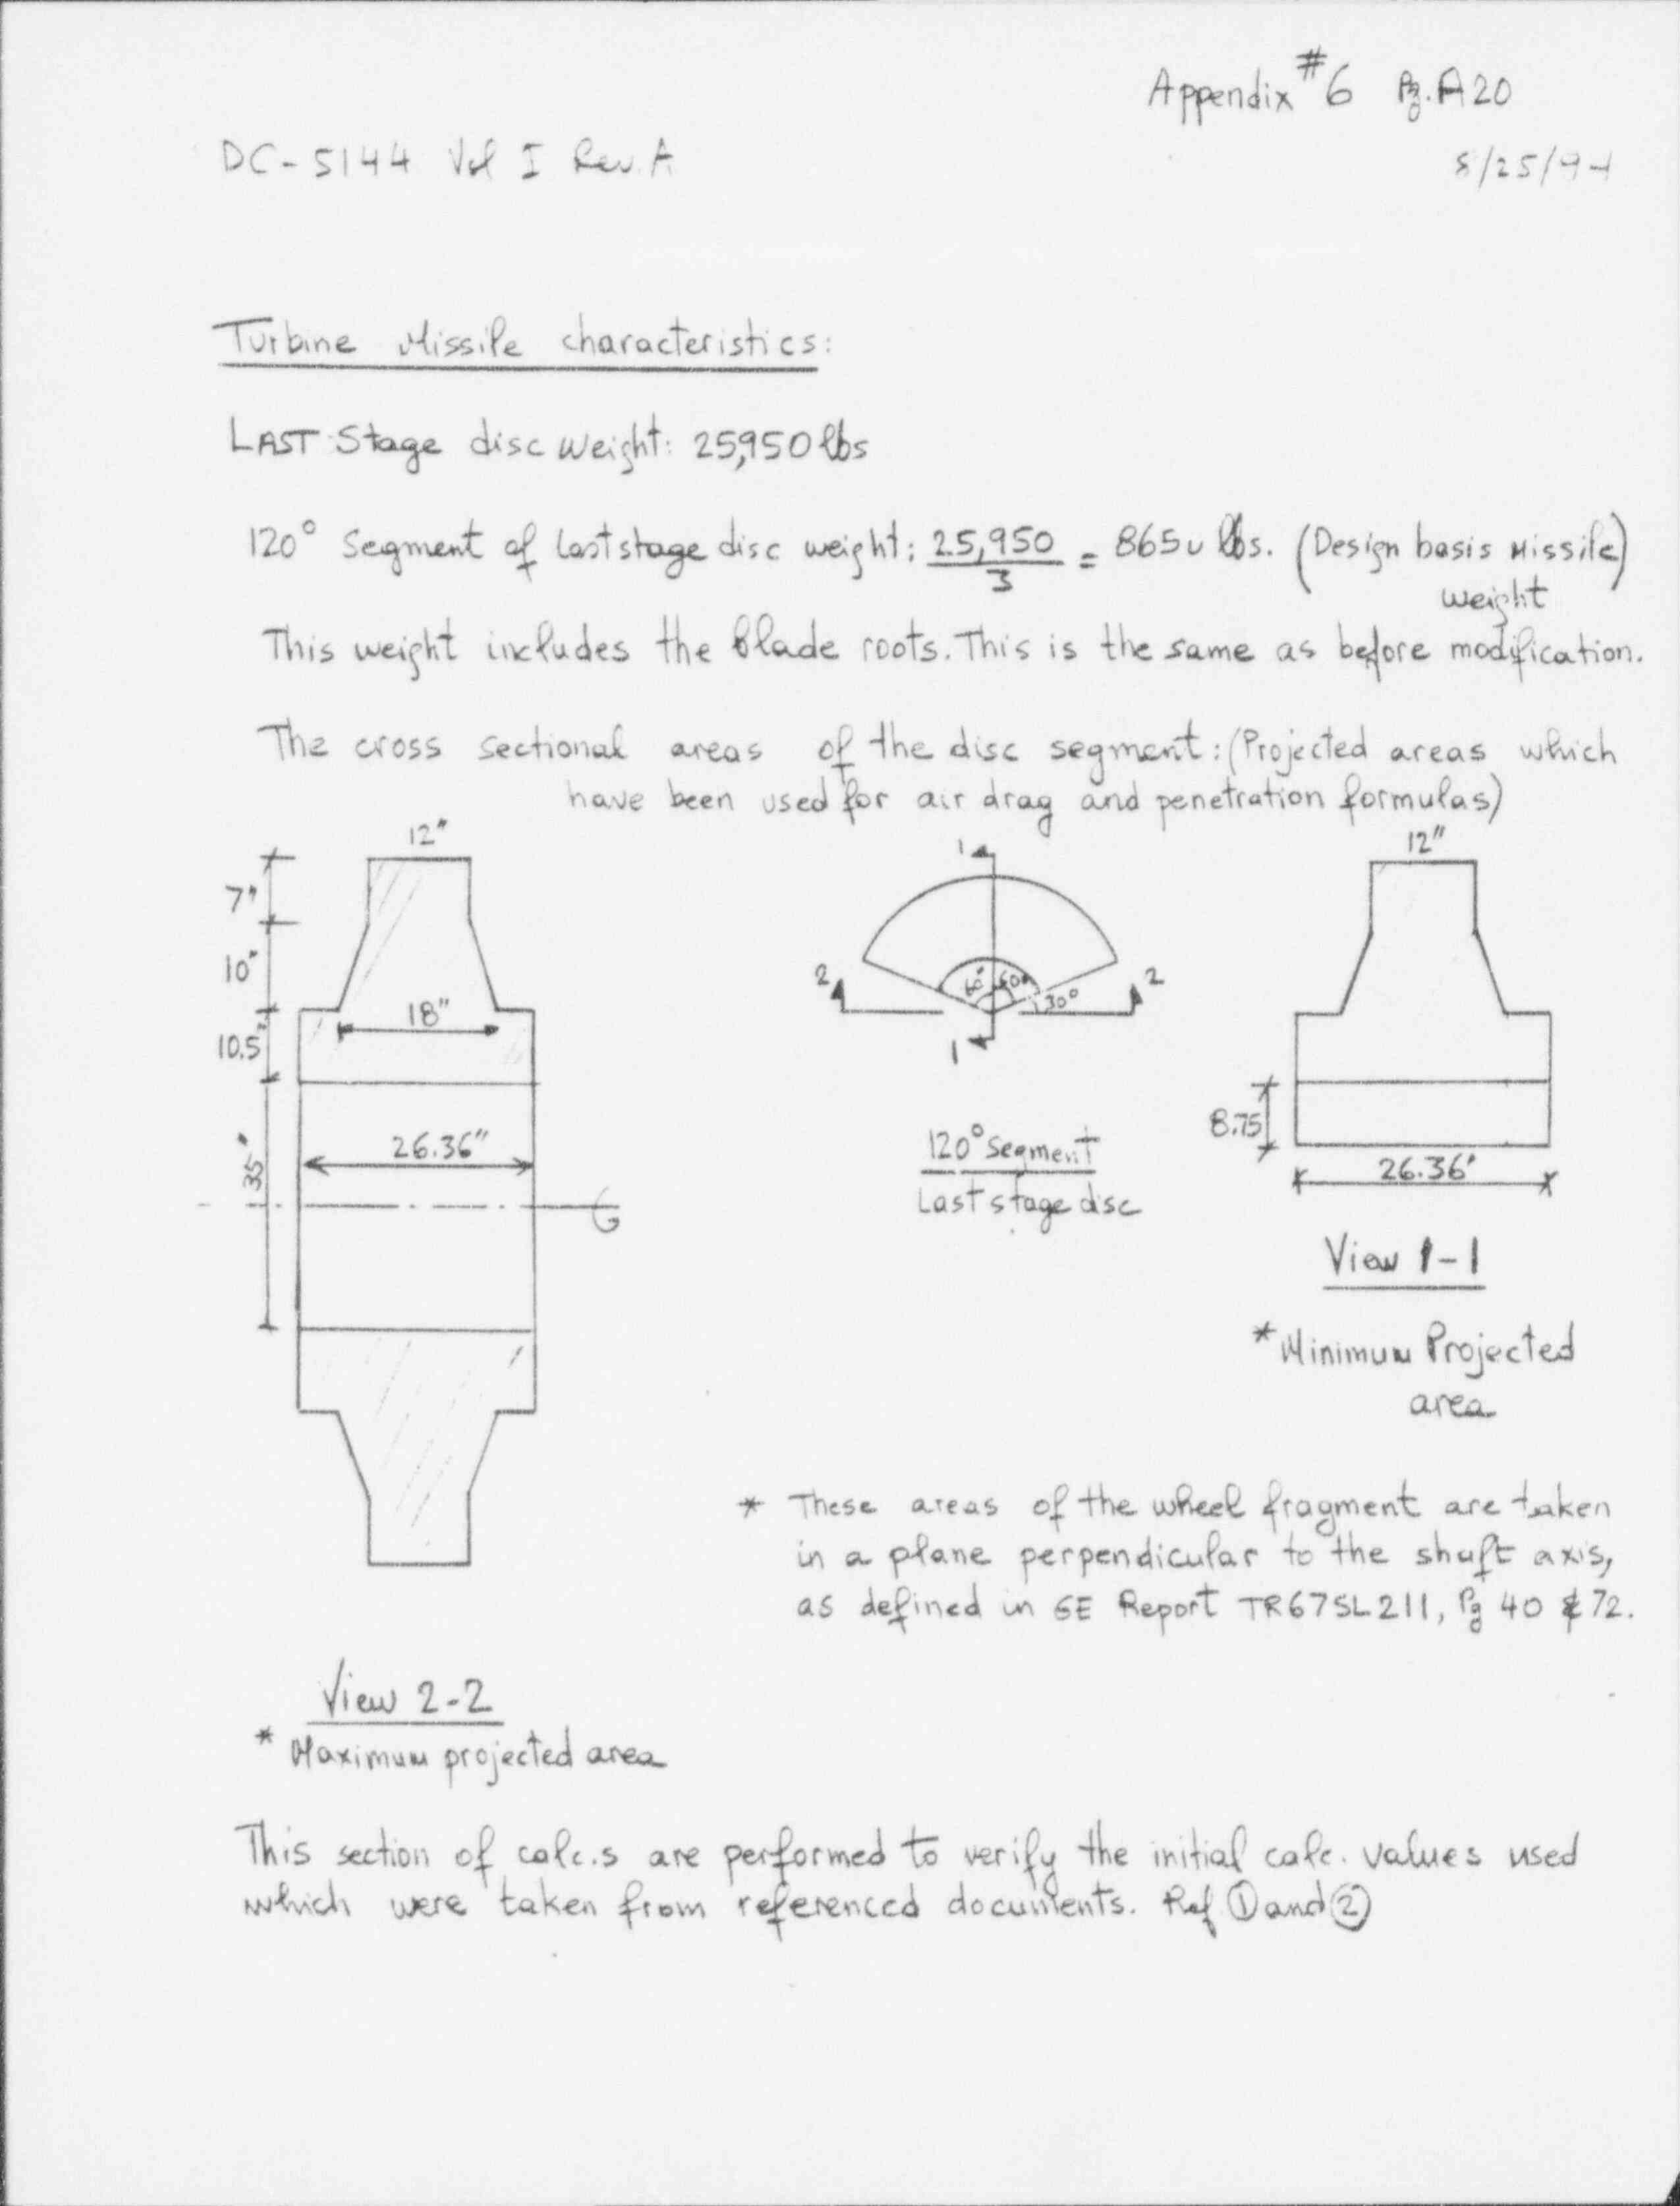 Appendix #6 Pg. A20
DC-5144 Vol I Rev. A
8/25/94
Turbine Missile characteristics:
LAST Stage disc weight: 25,950 lbs
120° Segment of last stage disc weight: 25,950/3 = 8650 lbs. (Design basis Missile) weight
This weight includes the Blade roots. This is the same as before modification.
The cross sectional areas of the disc segment: (Projected areas which
have been used for air drag and penetration formulas)
12"
7"
10"
18"
10.5"
26.36"
35"
1
2
60°
60°
30°
2
1
120° Segment
Last stage disc
12"
8.75
26.36"
View 1-1
*Minimum Projected
area
* These areas of the wheel fragment are taken
in a plane perpendicular to the shaft axis,
as defined in GE Report TR67SL211, Pg 40 & 72.
View 2-2
* Maximum projected area
This section of calc.s are performed to verify the initial calc. values used
which were taken from referenced documents. Ref ① and ②